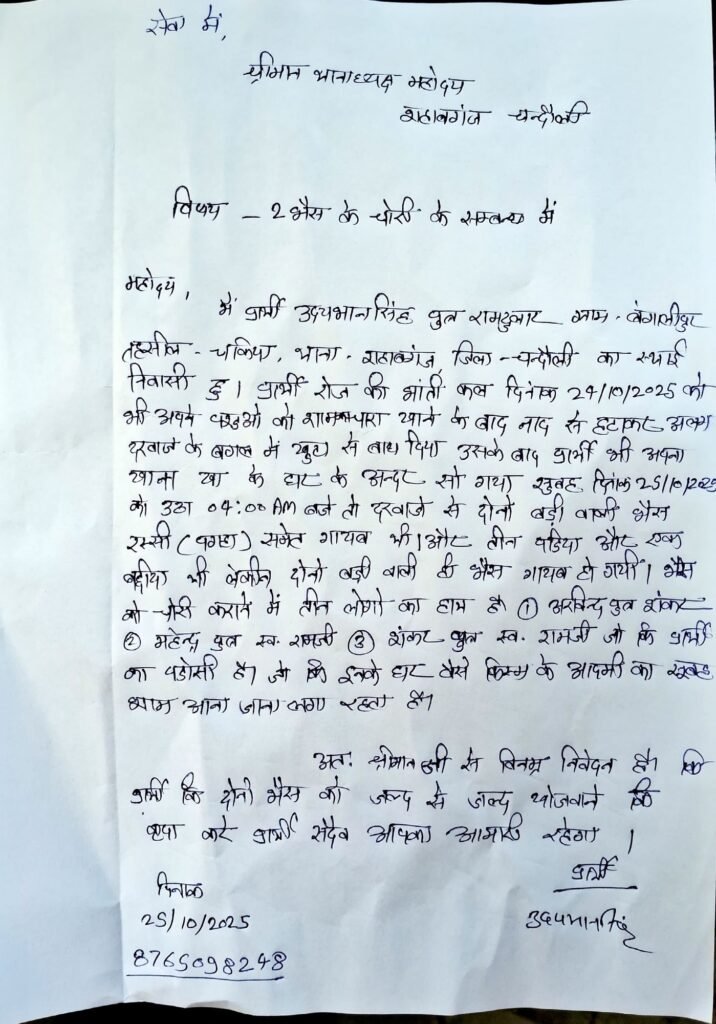 सेवा में,
श्रीमान थानाध्यक्ष महोदय
शहाबगंज चन्दौली
विषय - 2 भैस के चोरी के सम्बन्ध में
महोदय,
में प्रार्थी उदयभान सिंह पुत्र रामदुलार ग्राम - बंगालीपुर
तहसील - चकिया, थाना - शहाबगंज, जिला - चन्दौली का स्थाई
निवासी हु। प्रार्थी रोज की भांती कल दिनांक 24/10/2025 को
भी अपने पशुओ को शाम चारा खाने के बाद नाद से हटाकर अलग
दरवाजे के बगल में खुटा से बाध दिया उसके बाद प्रार्थी भी अपना
खाना खा के घर के अन्दर सो गया सुबह दिनांक 25/10/2025
को उठा 04:00 AM बजे तो दरवाजे से दोनो बड़ी वाली भैस
रस्सी (पगहा) समेत गायब थी। और तीन पडिया और एक
बछीया थी लेकीन दोनो बड़ी वाली ही भैस गायब हो गयी। भैस
को चोरी कराने में तीन लोगो का हाथ है ① अरविन्द पुत्र शंकर
② महेन्द्र पुत्र स्व. रामजी ③ शंकर पुत्र स्व. रामजी जो कि प्रार्थी
का पडोसी है। जो कि इनके घर वैसे किस्म के आदमी का सुबह
शाम आना जाना लगा रहता है।
अतः श्रीमान जी से विनम्र निवेदन है। कि
प्रार्थी कि दोनो भैस को जल्द से जल्द खोजवाने कि
कृपा करे प्रार्थी सदैव आपका आभारी रहेगा।
प्रार्थी
दिनांक
25/10/2025
उदयभान सिंह
8765098248